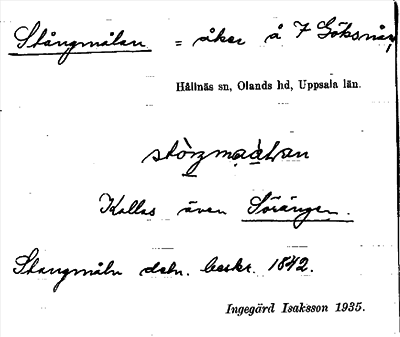 Stångmålan = åker å 7 Göksnår,
Hållnäs sn, Olands hd, Uppsala län.
Kallas även Sörängen.
Stangmåln dsbr. beskr. 1842.
Ingegärd Isaksson 1935.